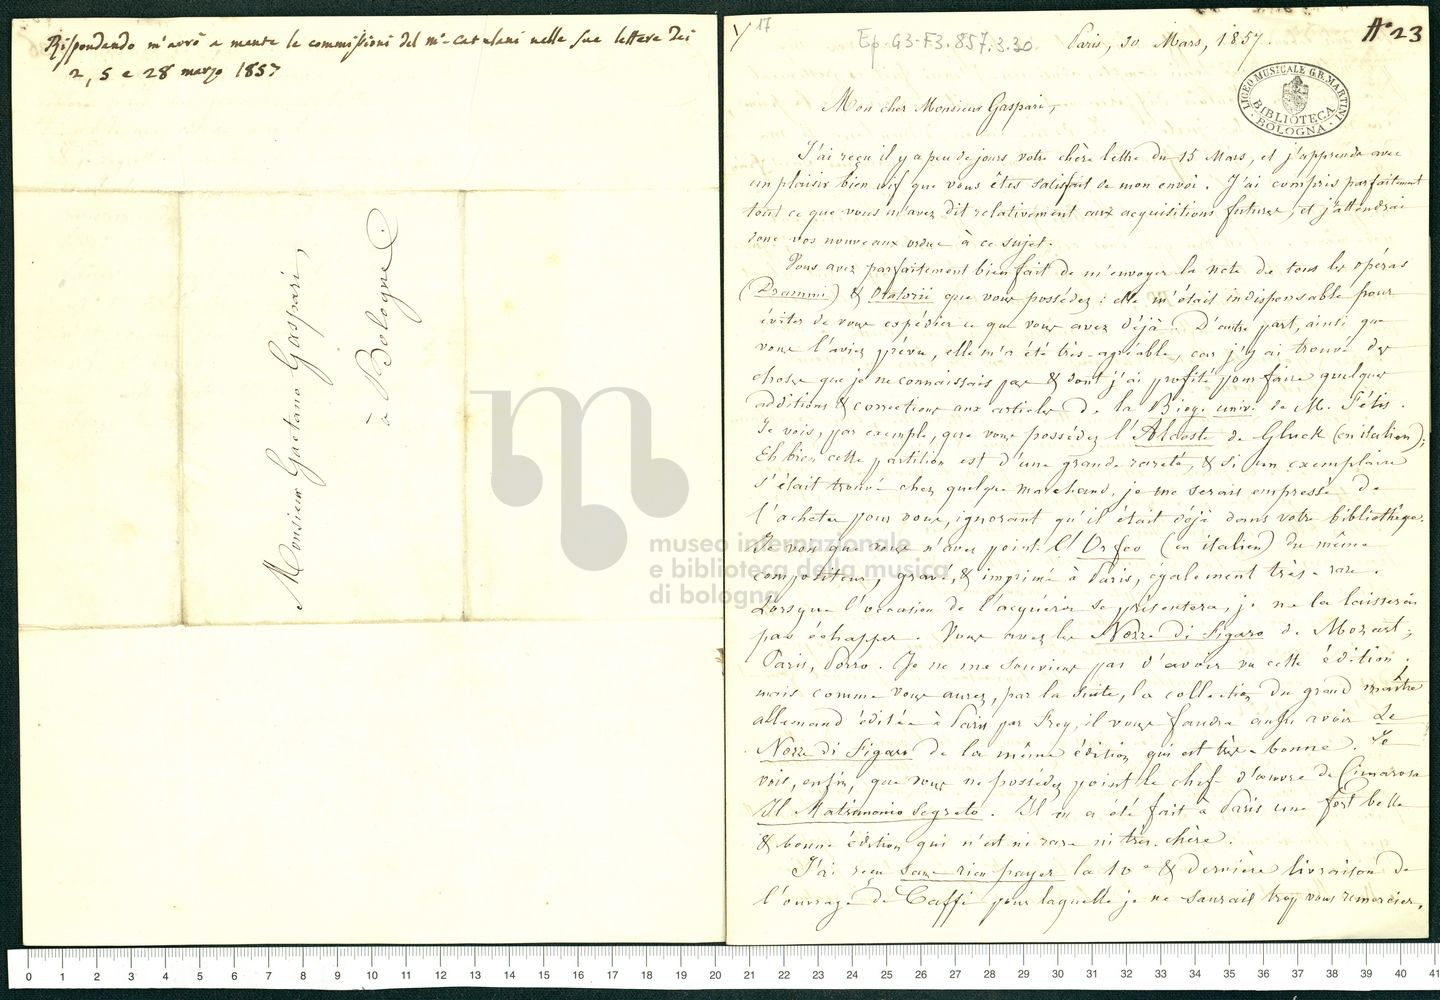 Rispondendo m'avrò a mente le commissioni del mº Catelani nelle sue lettere dei
2, 5 e 28 marzo 1857
Monsieur Gaetano Gaspari,
à Bologne
17
Ep. G3-F3.857.3.30
Paris, 30 Mars, 1857.
Nº 23
LICEO MUSICALE G.B. MARTINI
BIBLIOTECA
BOLOGNA
Mon cher Monsieur Gaspari,
J'ai reçu il y a peu de jours votre chère lettre du 15 Mars, et j'apprends avec
un plaisir bien vif que vous êtes satisfait de mon envoi. J'ai compris parfaitement
tout ce que vous m'avez dit relativement aux acquisitions futures, et j'attendrai
donc vos nouveaux ordres à ce sujet.
Vous avez parfaitement bien fait de m'envoyer la note de tous les opéras
(Drammi) & Oratorii que vous possédez : elle m'était indispensable pour
éviter de vous expédier ce que vous avez déjà. D'autre part, ainsi que
vous l'aviez prévu, elle m'a été très-agréable, car j'y ai trouvé des
choses que je ne connaissais pas & dont j'ai profité pour faire quelques
additions & corrections aux articles de la Biog. univ. de M. Fétis.
Je vois, par exemple, que vous possédez l'Alceste de Gluck (en italien);
Eh bien cette partition est d'une grande rareté, & si un exemplaire
s'était trouvé chez quelque marchand, je me serais empressé de
l'acheter pour vous, ignorant qu'il était déjà dans votre bibliothèque.
Je vois que vous n'avez point l'Orfeo (en italien) du même
compositeur, gravé, & imprimé à Paris, également très-rare.
Lorsque l'occasion de l'acquérir se présentera, je ne la laisserai
pas échapper. Vous avez les Nozze di Figaro de Mozart;
Paris, Porro. Je ne me souviens pas d'avoir vu cette édition;
mais comme vous aurez, par la suite, la collection du grand maître
allemand éditée à Paris par Frey, il vous faudra aussi avoir Le
Nozze di Figaro de la même édition qui est très-bonne. Je
vois, enfin, que vous ne possédez point le chef d'œuvre de Cimarosa
Il Matrimonio Segreto. Il en a été fait à Paris une fort belle
& bonne édition qui n'est ni rare ni très-chère.
J'ai reçu sans rien payer la 10e & dernière livraison de
l'ouvrage de Caffi pour laquelle je ne saurais trop vous remercier,
museo internazionale
e biblioteca della musica
di bologna
0 1 2 3 4 5 6 7 8 9 10 11 12 13 14 15 16 17 18 19 20 21 22 23 24 25 26 27 28 29 30 31 32 33 34 35 36 37 38 39 40 41